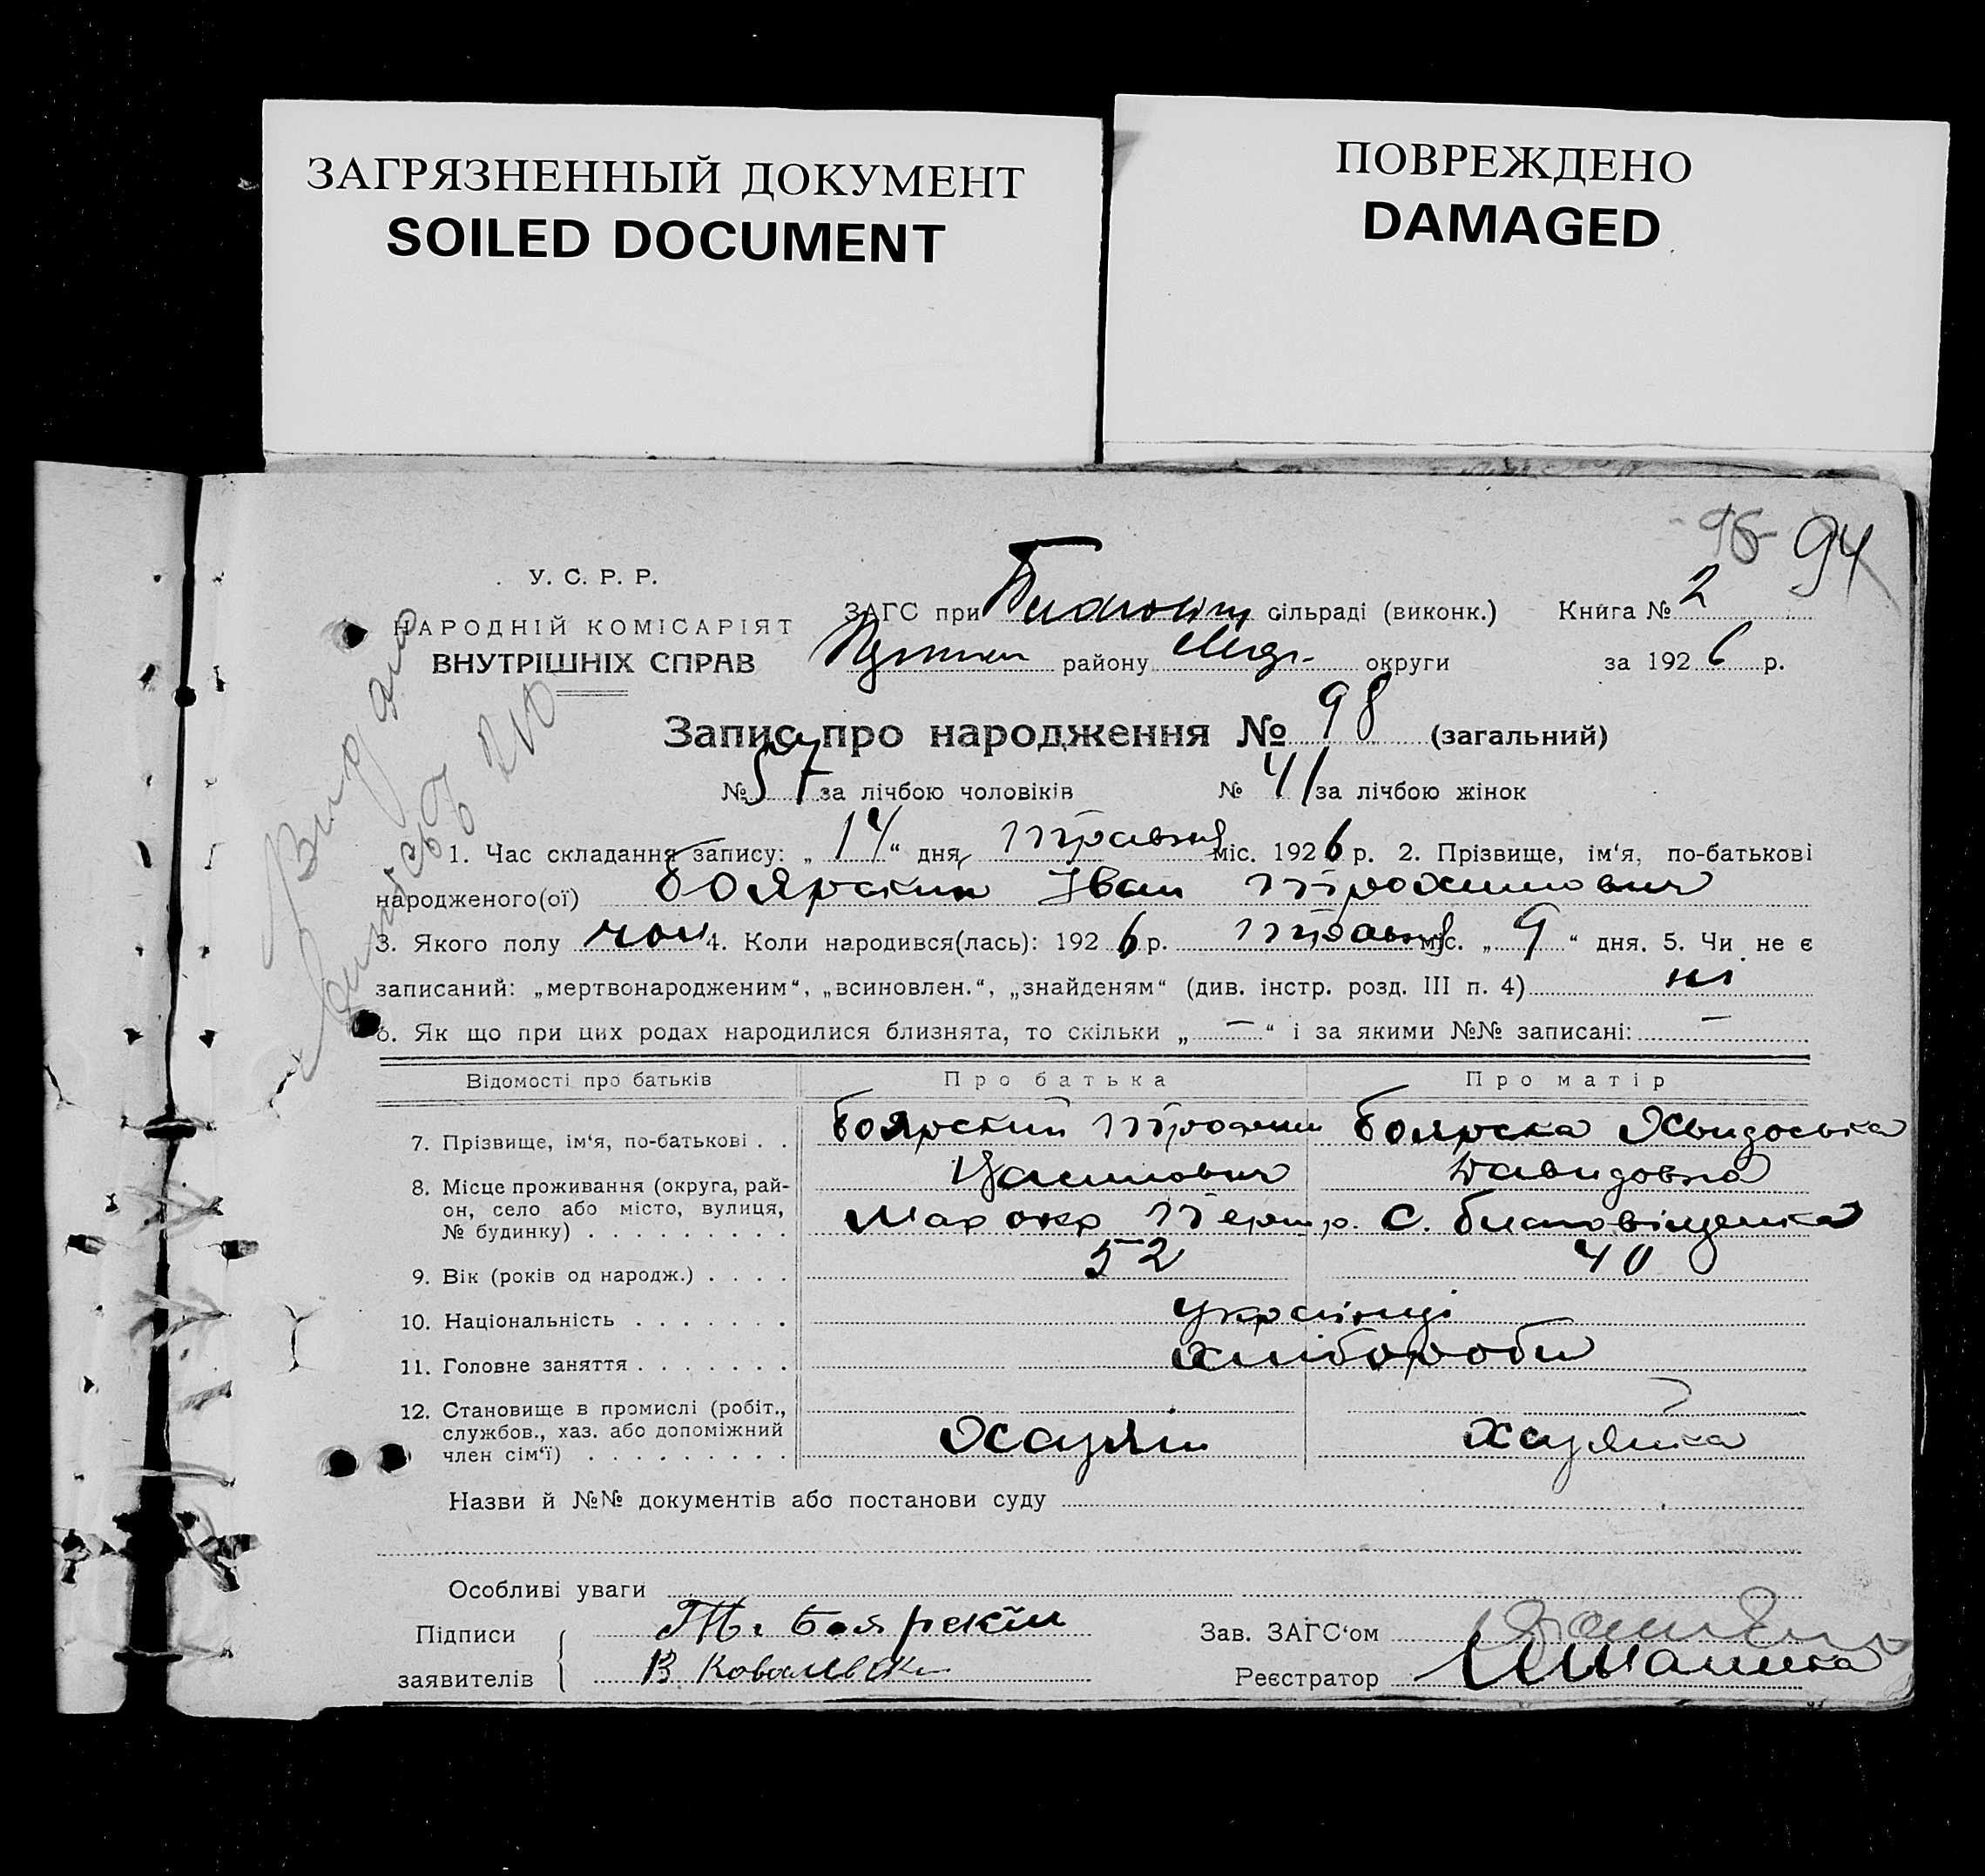 ЗАГРЯЗНЕННЫЙ ДОКУМЕНТ
SOILED DOCUMENT
ПОВРЕЖДЕНО
DAMAGED
98 94
У. С. Р. Р.
НАРОДНІЙ КОМІСАРІЯТ
ВНУТРІШНІХ СПРАВ
ЗАГС при сільраді (виконк.) Книга № 2
району округи за 1926 р.
Запис про народження № 98 (загальний)
№ 57 за лічбою чоловіків № 41 за лічбою жінок
1. Час складання запису: „14“ дня травня міс. 1926 р. 2. Прізвище, ім‘я, по-батькові
народженого(ої) Боярский Іван Трохимович
3. Якого полу чол 4. Коли народився(лась): 1926 р. травня міс. „9“ дня. 5. Чи не є
записаний: „мертвонародженим“, „всиновлен.“, „знайденям“ (див. інстр. розд. III п. 4) ні
6. Як що при цих родах народилися близнята, то скільки „—“ і за якими №№ записані: —
Відомості про батьків Про батька Про матір
7. Прізвище, ім‘я, по-батькові . . Боярский Трохим Боярска
Давидовна
8. Місце проживання (округа, рай-
он, село або місто, вулиця,
№ будинку) . . . . . . . . . Мар окр с. благовіщенка
9. Вік (років од народж.) . . . . 52 40
10. Національність . . . . . . . українці
11. Головне заняття . . . . . . . хлібороби
12. Становище в промислі (робіт.,
службов., хаз. або допоміжний
член сім‘ї) . . . . . . . . . Хазяїн хазяйка
Назви й №№ документів або постанови суду
Особливі уваги
Підписи Т. Боярский Зав. ЗАГС‘ом
заявителів В Ковалевск Реєстратор